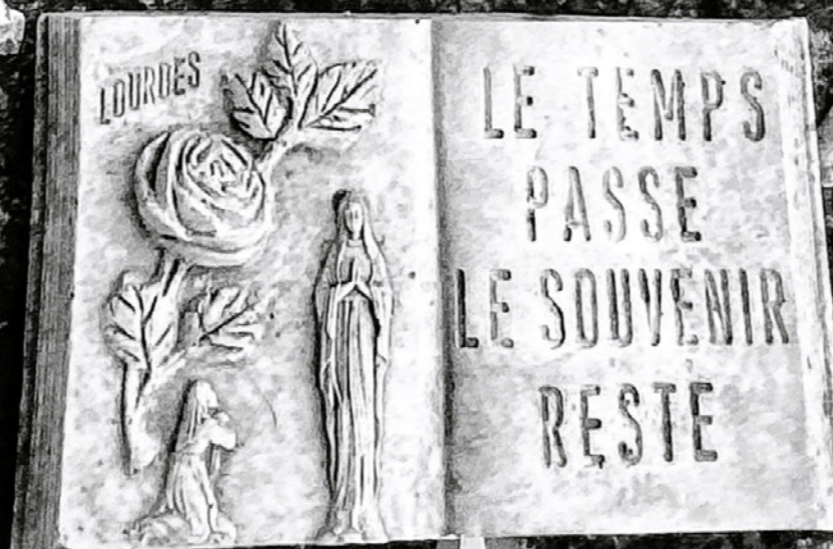 LOURDES
LE TEMPS
PASSE
LE SOUVENIR
RESTE